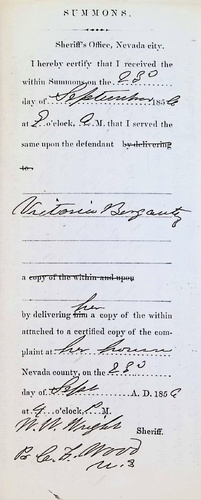 SUMMONS.
Sheriff's Office, Nevada city.
I hereby certify that I received the
within Summons on the 23d
day of September 1856
at o'clock, M. that I served the
same upon the defendant by delivering
to
Victoria Bergantz
a copy of the within and upon
her
by delivering him a copy of the within
attached to a certified copy of the com-
plaint at her house
Nevada county, on the 23d
day of Sept A. D. 1856
at 9 o'clock, P. M.
W. W. Wright Sheriff.
By C. F. Wood
U. S